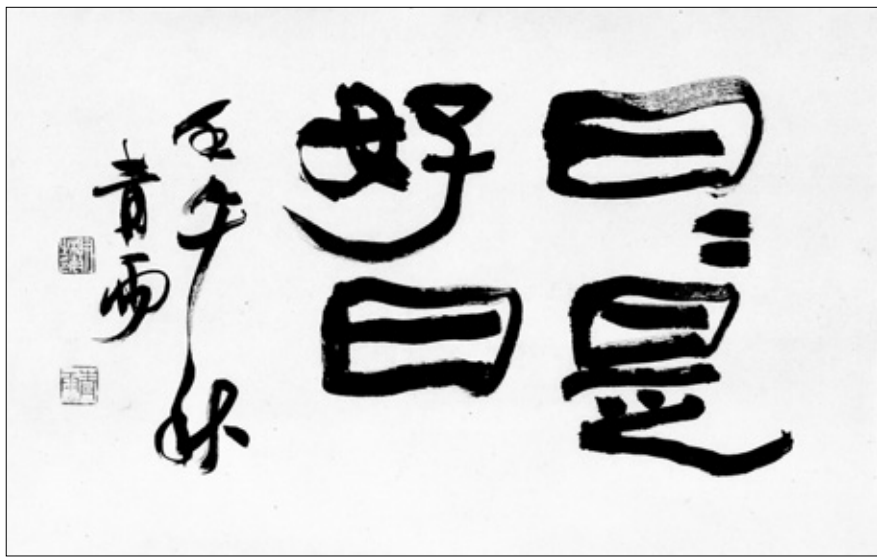 日〻是
好日
壬午秋
青雨